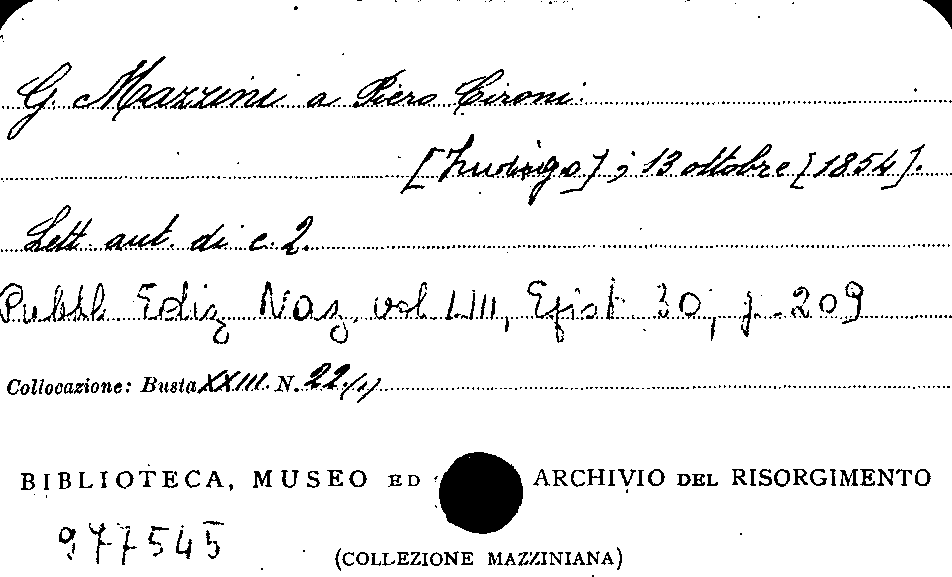 G. Mazzini a Piero Cironi.
[Zurigo]; 13 ottobre [1854].
Lett. aut. di c. 2.
Pubbl. Ediz. Naz. vol. LIII, Epist. 30, p. 209
Collocazione: Busta XXIII. N. 22
BIBLIOTECA, MUSEO ED ARCHIVIO DEL RISORGIMENTO
977545
(COLLEZIONE MAZZINIANA)